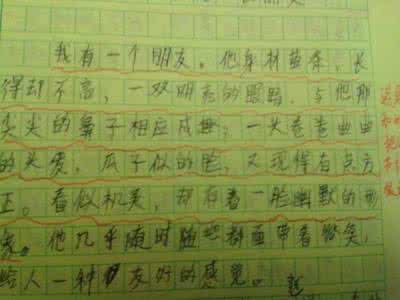 我有一个朋友。他身材苗条，长
得却不高，一双明亮的眼睛，与他那
尖尖的鼻子相应成趣；一头卷卷曲曲
的头发，瓜子似的脸，又现得有点方
正。看似机关，却有着一脸幽默的形
象。他几乎随时随地都面带着微笑，
给人一种友好的感觉。